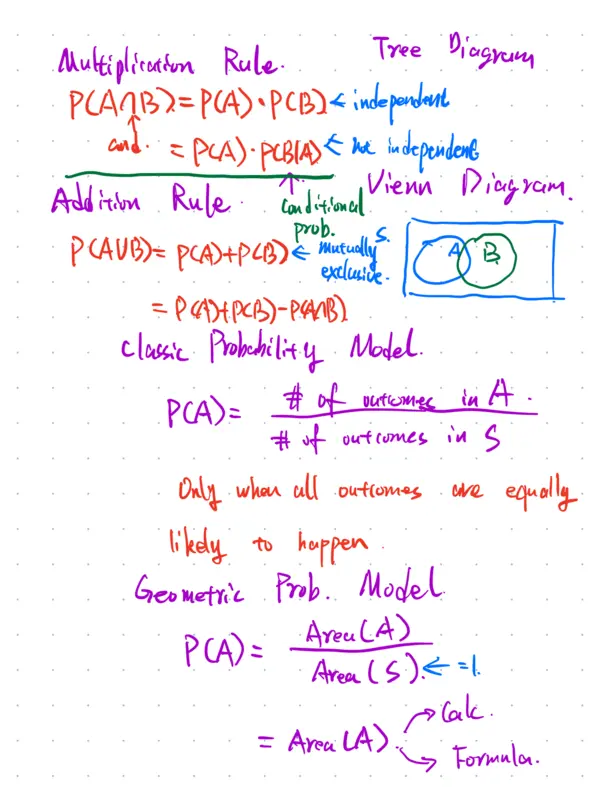 Multiplication Rule.
Tree Diagram
P(A∩B)=P(A)·P(B) ← independent
and. = P(A)·P(B|A) ← not independent
Addition Rule.
conditional prob.
Vienn Diagram.
P(A∪B)= P(A)+P(B) ← mutually exclusive.
S.
A B
= P(A)+P(B)-P(A∩B).
Classic Probability Model.
P(A)= # of outcomes in A.
# of outcomes in S
Only when all outcomes are equally
likely to happen.
Geometric Prob. Model.
P(A)= Area(A)
Area(S). ← =1.
= Area(A). → Calc.
→ Formula.